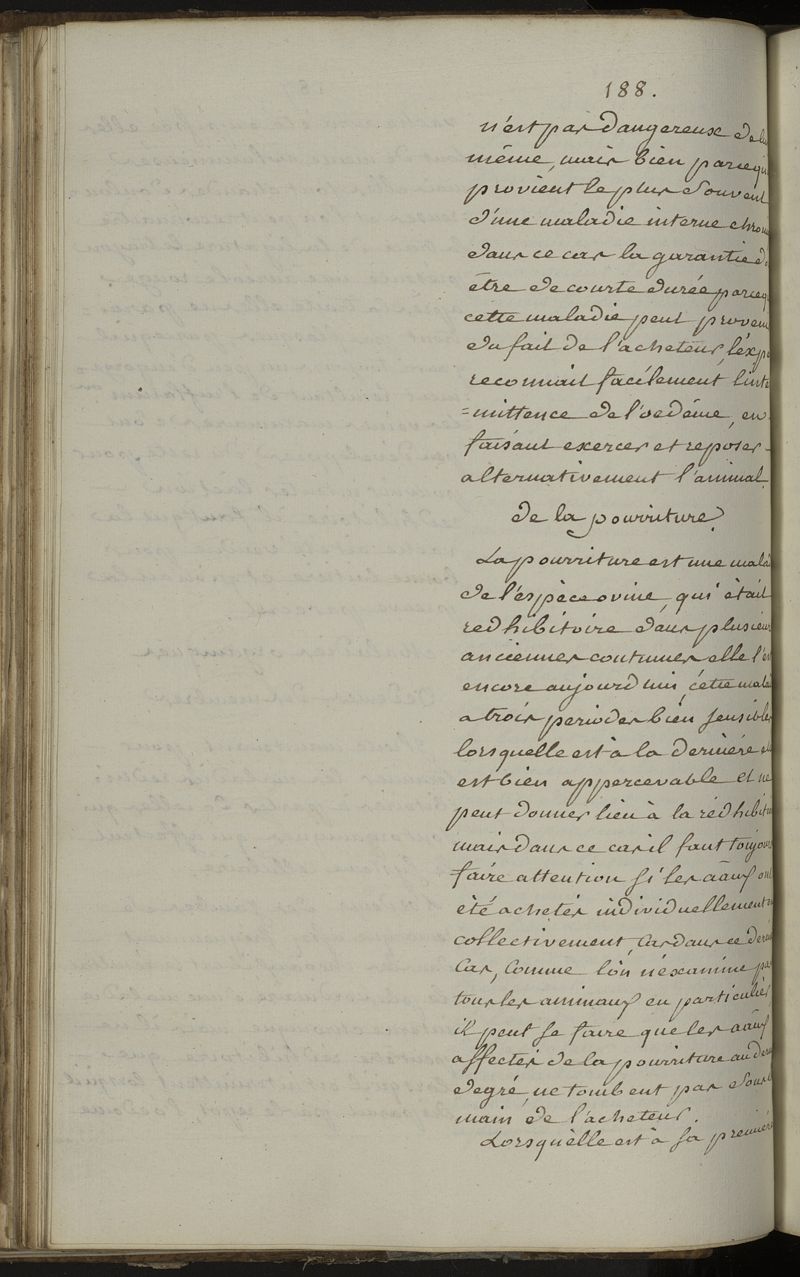 188.
n'est pas dangereuse de
même, mais bien parcequ
provient le plus souvent
d'une maladie interne chron
dans ce cas la garantie d
être de courte durée parceq
cette maladie peut proven
du fait de l'acheteur, l'exp
reconnait facilement l'inte
=mittence de l'oedéme, en
faisant exercer et reposer
alternativement l'animal.
de la pourriture
La pourriture est une malad
de l'espèce ovine, qui était
redhibitoire dans plusieurs
anciennes coutumes elle l'es
encore aujourd'hui, cette malad
a trois periodes bien sensibles
lorsquelle est à la dernière
est bien appercevable et ne
peut donner lieu à la rédhibiti
mais dans ce cas il faut toujours
faire attention si les aãux on
été achetés individuellement
collectivement, Car dans ce derni
Cas, Comme l'on n'éxamine pas
tous les animaux en particulier,
il peut se faire que les aãux
affectés de la pourriture au der
degré, ne tombent pas sous
main de l'acheteur.
Lorsquèlle est à sa première